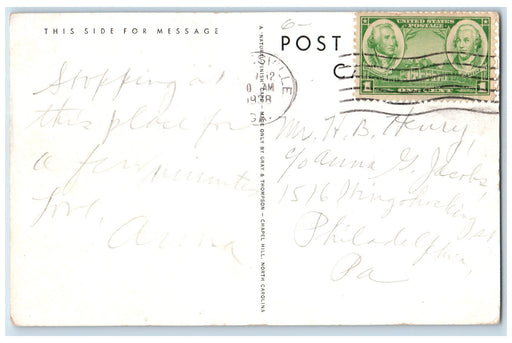 THIS SIDE FOR MESSAGE
Stopping at
this place for
a few minutes
Love,
Anna
A "NATURAL FINISH" CARD – MADE ONLY BY GRAY & THOMPSON – CHAPEL HILL, NORTH CAROLINA
6-
POST
VILLE
12
AM
UNITED STATES
POSTAGE
1 ONE CENT 1
Mr. H. B. Henry,
c/o Anna G. Jacobs,
1516 St
Philadelphia,
Pa